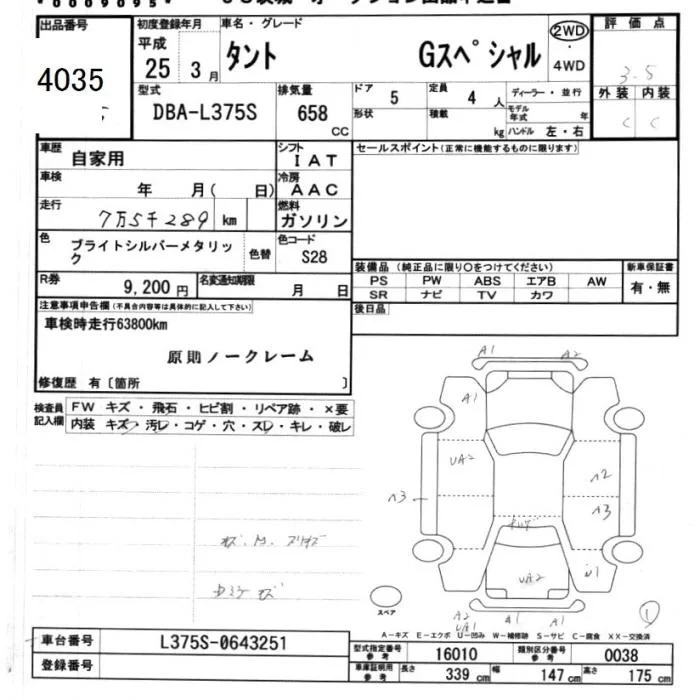 出品番号 初度登録年月 車名・グレード 2WD 評価点
平成 ・
4035 25 3月 タント Gスペシャル 4WD 3.5
型式 排気量 ドア 定員 ディーラー・並行 外装 内装
DBA-L375S 658 5 4人 モデル年式 年 C C
CC 形状 積載 kg ハンドル 左・右
車歴 自家用 シフト IAT セールスポイント(正常に機能するものに限ります)
車検 年 月( 日) 冷房 AAC
走行 7万5千289 km 燃料 ガソリン
色 ブライトシルバーメタリック 色替 色コード S28
装備品(純正品に限り○をつけてください) 新車保証書
PS PW ABS エアB AW 有・無
R券 9,200円 名変通知期限 月 日 SR ナビ TV カワ
注意事項申告欄(不具合内容等は具体的に記入して下さい) 後日品
車検時走行63800km
原則ノークレーム
修復歴 有〔箇所 〕
検査員記入欄 FW キズ・飛石・ヒビ割・リペア跡・×要
内装 キズ・汚レ・コゲ・穴・スレ・キレ・破レ
A1 A2
A1
UA2 A2
A3 A3
UA2 U1
スペア A2 UA1 A1 A1 1
A-キズ E-エクボ U-凹み W-補修跡 S-サビ C-腐食 XX-交換済
車台番号 L375S-0643251 型式指定番号 参考 16010 類別区分番号 参考 0038
登録番号 車庫証明用 参考 長さ 339cm 幅 147cm 高さ 175cm